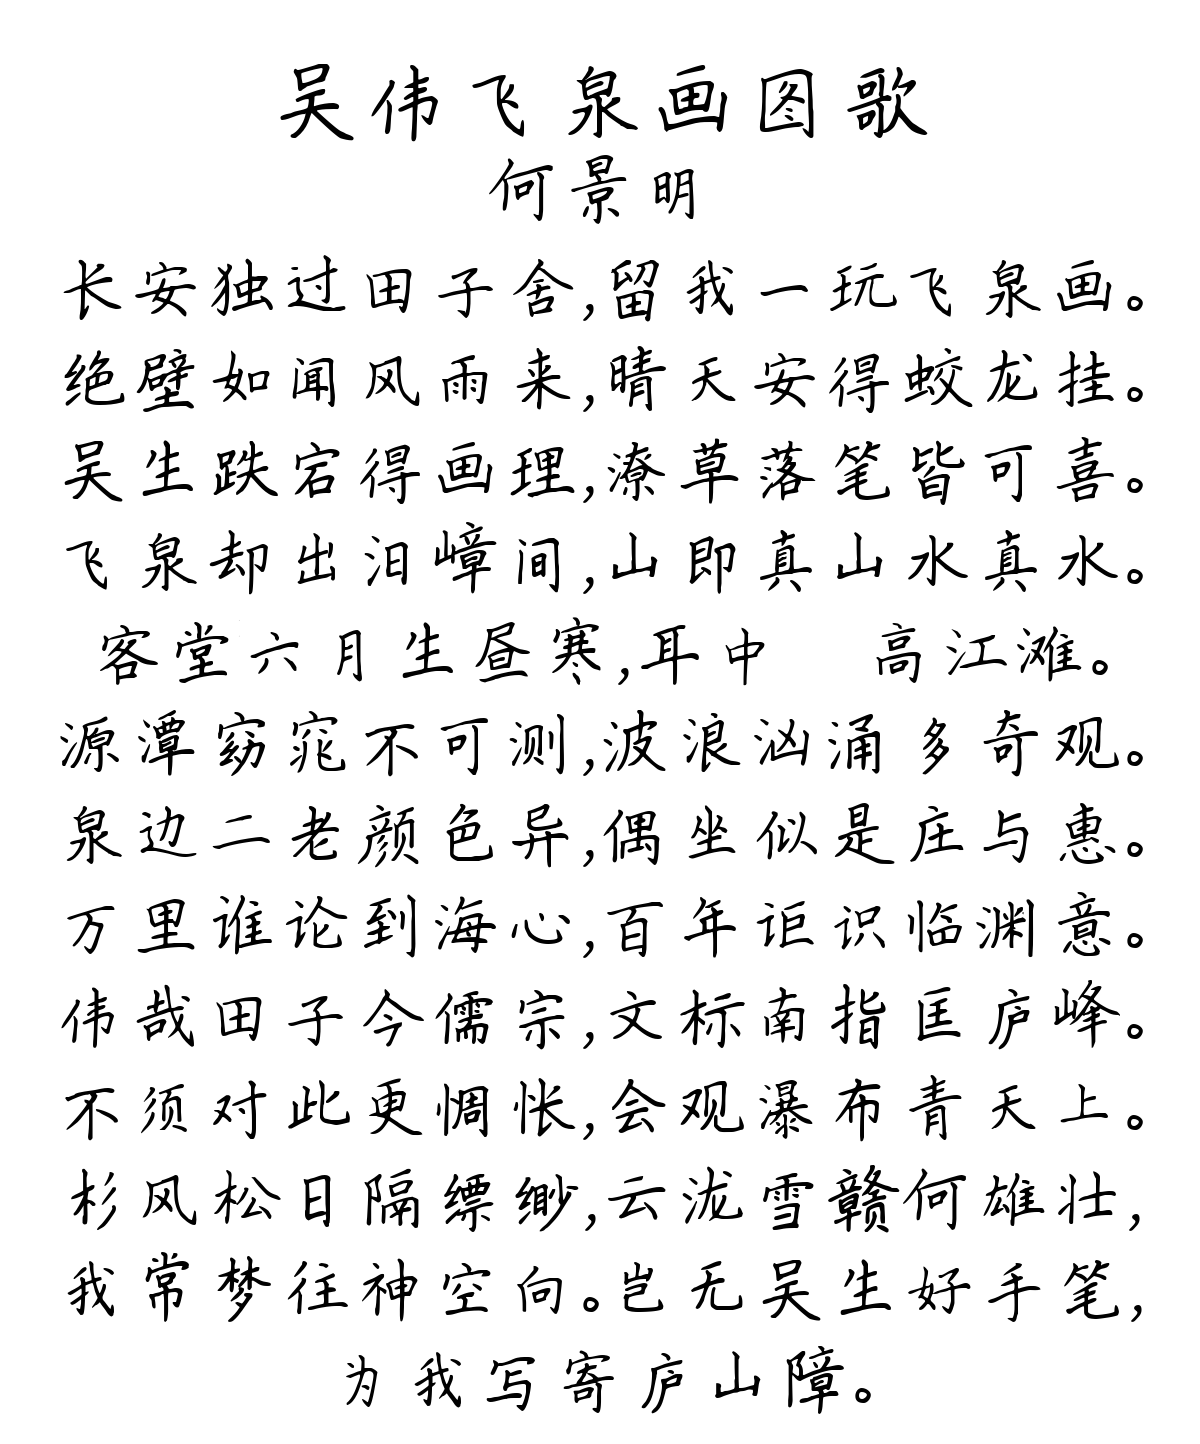 吴伟飞泉画图歌
何景明
长安独过田子舍,留我一玩飞泉画。
绝壁如闻风雨来,晴天安得蛟龙挂。
吴生跌宕得画理,潦草落笔皆可喜。
飞泉却出汨嶂间,山即真山水真水。
客堂六月生昼寒,耳中 高江滩。
源潭窈窕不可测,波浪汹涌多奇观。
泉边二老颜色异,偶坐似是庄与惠。
万里谁论到海心,百年讵识临渊意。
伟哉田子今儒宗,文标南指匡庐峰。
不须对此更惆怅,会观瀑布青天上。
杉风松日隔缥缈,云泷雪赣何雄壮,
我常梦往神空向。岂无吴生好手笔,
为我写寄庐山障。